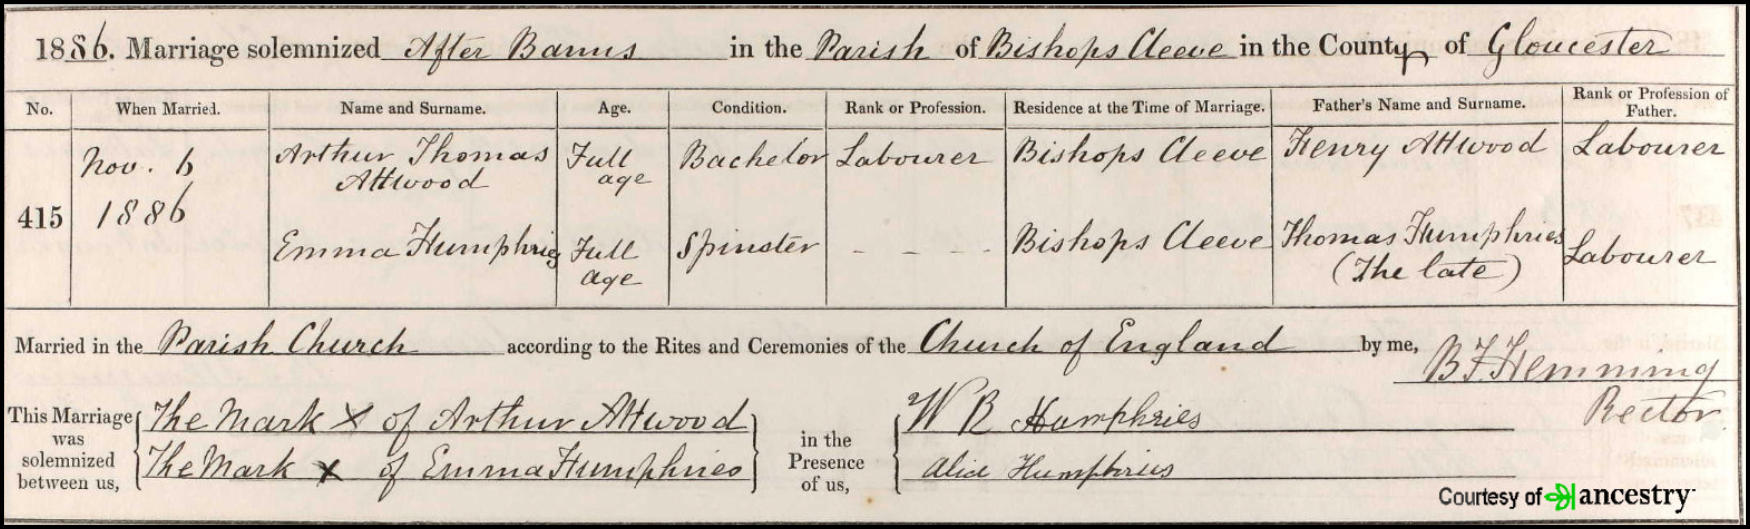 1886. Marriage solemnized After Banns in the Parish of Bishops Cleeve in the County of Gloucester
No. When Married. Name and Surname. Age. Condition. Rank or Profession. Residence at the Time of Marriage. Father's Name and Surname. Rank or Profession of Father.
415 Nov. 6 1886 Arthur Thomas Attwood Full age Bachelor Labourer Bishops Cleeve Henry Attwood Labourer
Emma Humphries Full age Spinster - - - - Bishops Cleeve Thomas Humphries (The late) Labourer
Married in the Parish Church according to the Rites and Ceremonies of the Church of England by me, B F Hemming
Rector
This Marriage was solemnized between us, The Mark X of Arthur Attwood
The Mark X of Emma Humphries
in the Presence of us, W R Humphries
Alice Humphries
Courtesy of ancestry